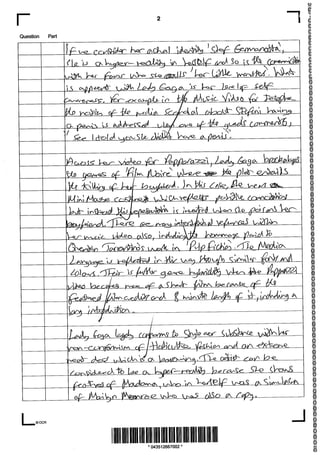 2
Question Part
If we consider her actual identity 'Stef Germanotta',
She is a hyper-reality in herself and so is the connection
with her fans who she calls 'her little monsters'. What
is apparent with Lady Gaga is her lack of self
awareness. For example in the Music Video for Telephone
the notion of the media Scandal about Stefani having
a penis is addressed when one of the guards comments,
'See I told you she didn't have a penis'.
Across her video for Papparazzi, Lady Gaga
the genres of 'Film Noire' where the plot entails
the killing of her boyfriend. In this case, she wears
Mini Mouse costume which reflects
but instead this representation is inverted when she poisons her
boyfriend. There are many intertextual references within
her music video also, including the homage paid to
Quentin Tarantino's work in 'Pulp Fiction'. The Media
Language is replicated in this way through similar fonts and
colours. Their is further genre hybridity when the Papparazzi
video becomes more of a short film because of the
featured film credits and 8 minute length of it, including a
long introduction.
Lady Gaga largely conforms to Style over Substance with her
non-conformism of Haticulture fashion and an extreme
meat dress which is a
The artist can be
considered to be a hyper-reality because she shows
features of Madonna, who in herself was a Simulation
of Marilyn Monroe who was also a copy.
OCR